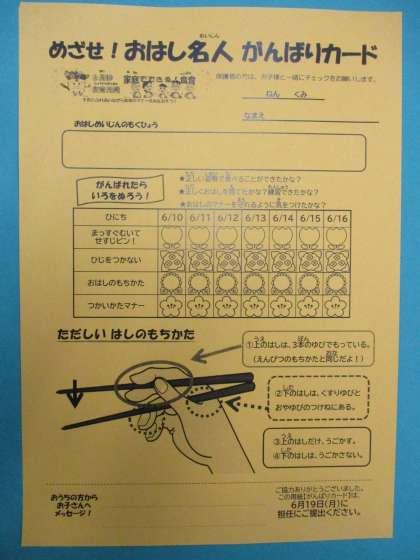 めざせ！おはし名人 がんばりカード
めいじん
家庭でできる食育
保護者の方は、お子様と一緒にチェックをお願いします。
ねん　くみ
なまえ
おはしめいじんのもくひょう
がんばれたら
いろをぬろう！
★正しい姿勢で食べることができたかな？
★正しくおはしを持てたかな？練習できたかな？
★おはしのマナーを守れるように気をつけたかな？
ひにち 6/10 6/11 6/12 6/13 6/14 6/15 6/16
まっすぐむいて
せすじピン！
ひじをつかない
おはしのもちかた
つかいかたマナー
ただしい はしのもちかた
①上のはしは、3本のゆびでもっている。
（えんぴつのもちかたと同じだよ！）
②下のはしは、くすりゆびと
おやゆびのつけねにある。
③上のはしだけ、うごかす。
④下のはしは、うごかさない。
おうちの方から
お子さんへ
メッセージ！
ご協力ありがとうございました。
この用紙【がんばりカード】は、
6月19日(月)に
担任にご提出ください。